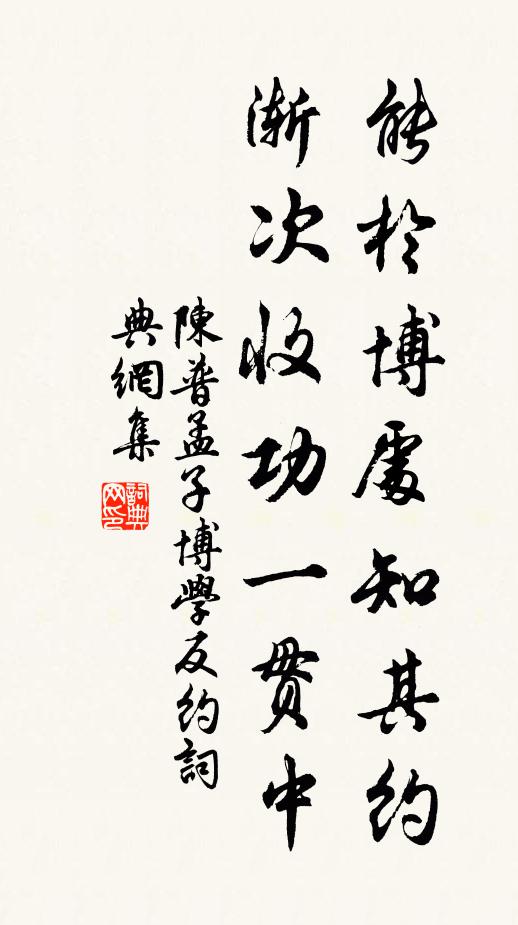 能於博處知其約
漸次收功一貫中
陳普孟子博學反約詞
典網集
詞典
网印